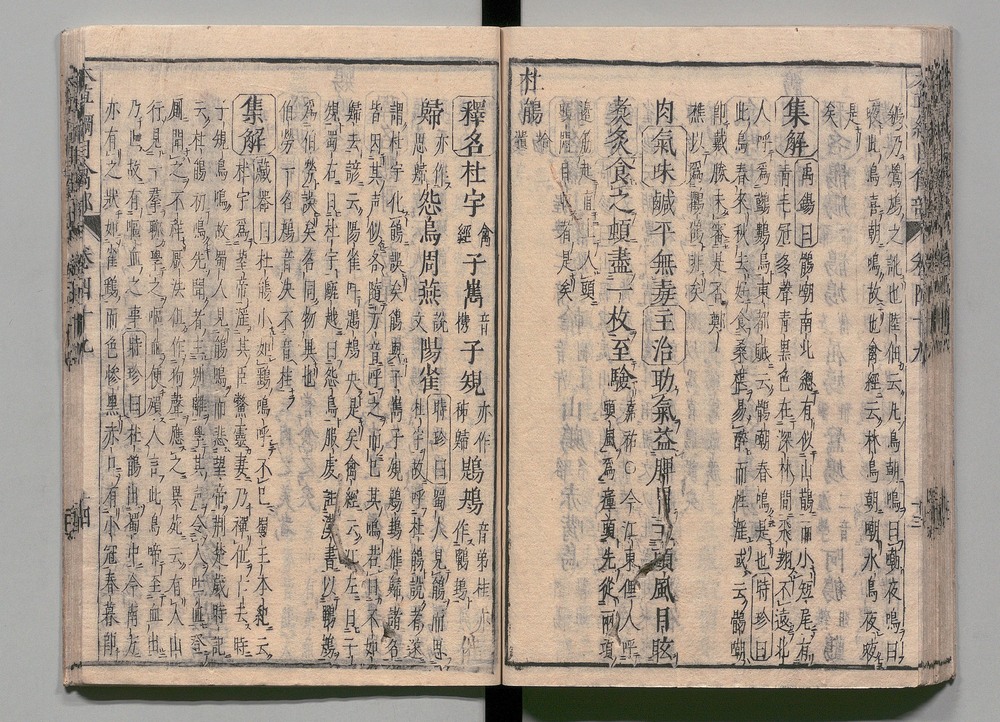 鵃乃鶯鳩之訛也陸佃云凡鳥朝鳴曰嘲夜鳴曰
㖡此鳥喜朝鳴故也禽經云林鳥朝嘲水鳥夜㖡
是
矣
集解
禹錫曰鶻嘲南北總有似山鵲而小短尾有
青毛冠多聲青黑色在深林間飛翔不遠北
人呼爲鸜鵒鳥東都賦云鶻嘲春鳴是也時珍曰
此鳥春來秋去好食桑椹易醉而性淫或云鶻嘲
即戴勝未審是否鄭
樵以爲鸜鵒非矣
肉氣味鹹平無毒主治助氣益脾胃主頭風目眩
煮炙食之頓盡一枚至驗
嘉祐○今江東俚人呼
頭風爲瘴頭先從兩項
邊筋起直上入頭
目眩頭悶者是矣
杜鵑
拾遺
釋名杜宇禽經子嶲音攜子規亦作秭歸鶗鴂音弟桂亦作鷤䳏催
歸亦作思歸怨鳥周燕說文陽雀
時珍曰蜀人見鵑而思
杜宇故呼杜鵑說者遂
謂杜宇化鵑誤矣鵑與子嶲子規鶗鴂催歸諸名
皆因其声似各隨方音呼之而已其鳴若曰不如
歸去諺云陽雀叫鶗鴂央是矣禽經云江左曰子
規蜀右曰杜宇甌越曰怨鳥服虔註漢書以鶗鴂
爲伯勞誤矣名同物異也
伯勞一名鴂音決不音桂
集解
藏器曰杜鵑小如鷂鳴呼不已蜀王本紀云
杜宇爲望帝淫其臣鱉靈妻乃禪位亡去時
子規鳥鳴故蜀人見鵑鳴而悲望帝荆楚歲時記
云杜鵑初鳴先聞者主別離學其声令人吐血登
厠聞之不祥厭法但作狗聲應之異苑云有人山
行見一群聊學之嘔血便殞人言此鳥啼至血出
乃止故有嘔血之事時珍曰杜鵑出蜀中今南方
亦有之狀如雀鷂而色慘黑赤口有小冠春暮即